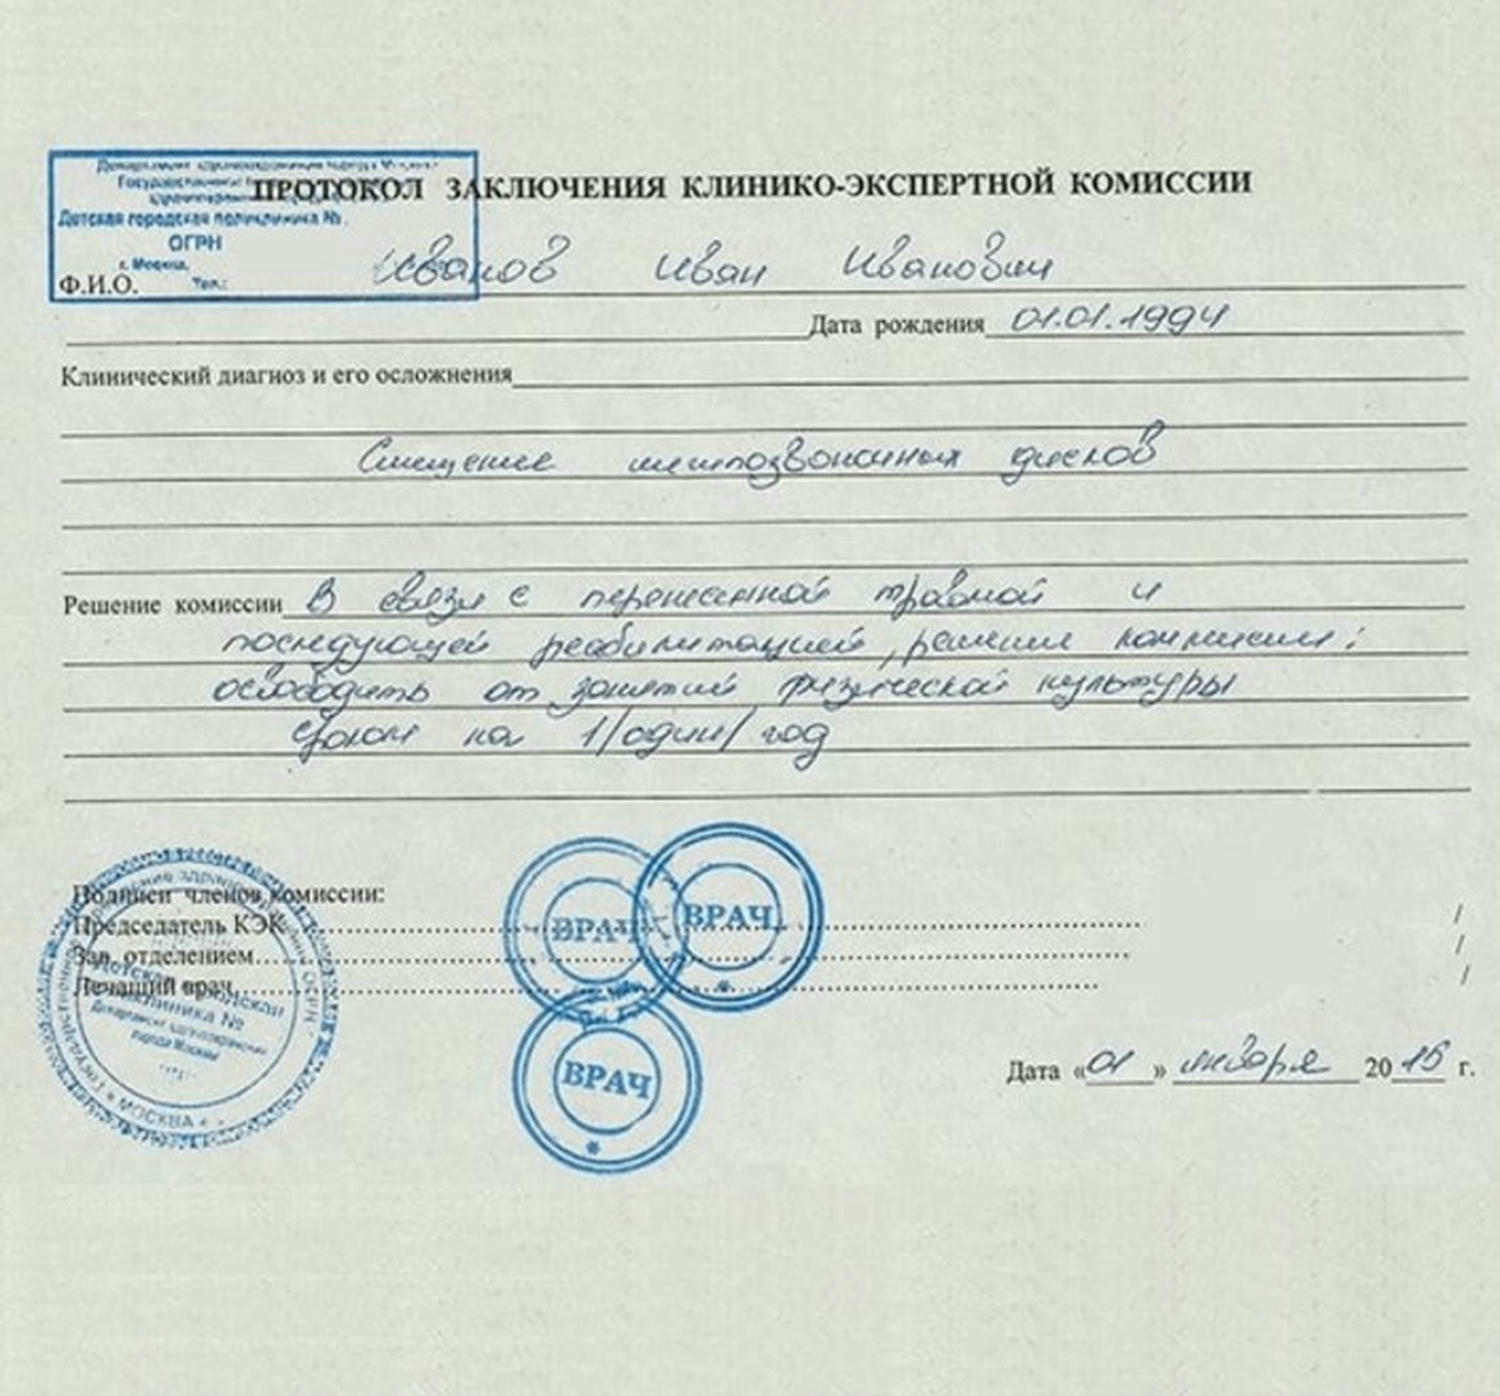 ПРОТОКОЛ ЗАКЛЮЧЕНИЯ КЛИНИКО-ЭКСПЕРТНОЙ КОМИССИИ
Детская городская поликлиника №
ОГРН
г. Москва,
Тел.:
Ф.И.О. Иванов Иван Иванович
Дата рождения 01.01.1994
Клинический диагноз и его осложнения
Смещение межпозвоночных дисков
Решение комиссии В связи с перенесенной травмой и
последующей реабилитацией, решение комиссии:
освободить от занятий физической культуры
сроком на 1/один/ год
Подписи членов комиссии:
Председатель КЭК
Зав. отделением
Лечащий врач
/
/
/
ВРАЧ
ВРАЧ
ВРАЧ
Детская городская
поликлиника №
Департамент здравоохранения
города Москвы
МОСКВА
ОГРН
Дата «01» января 2015 г.